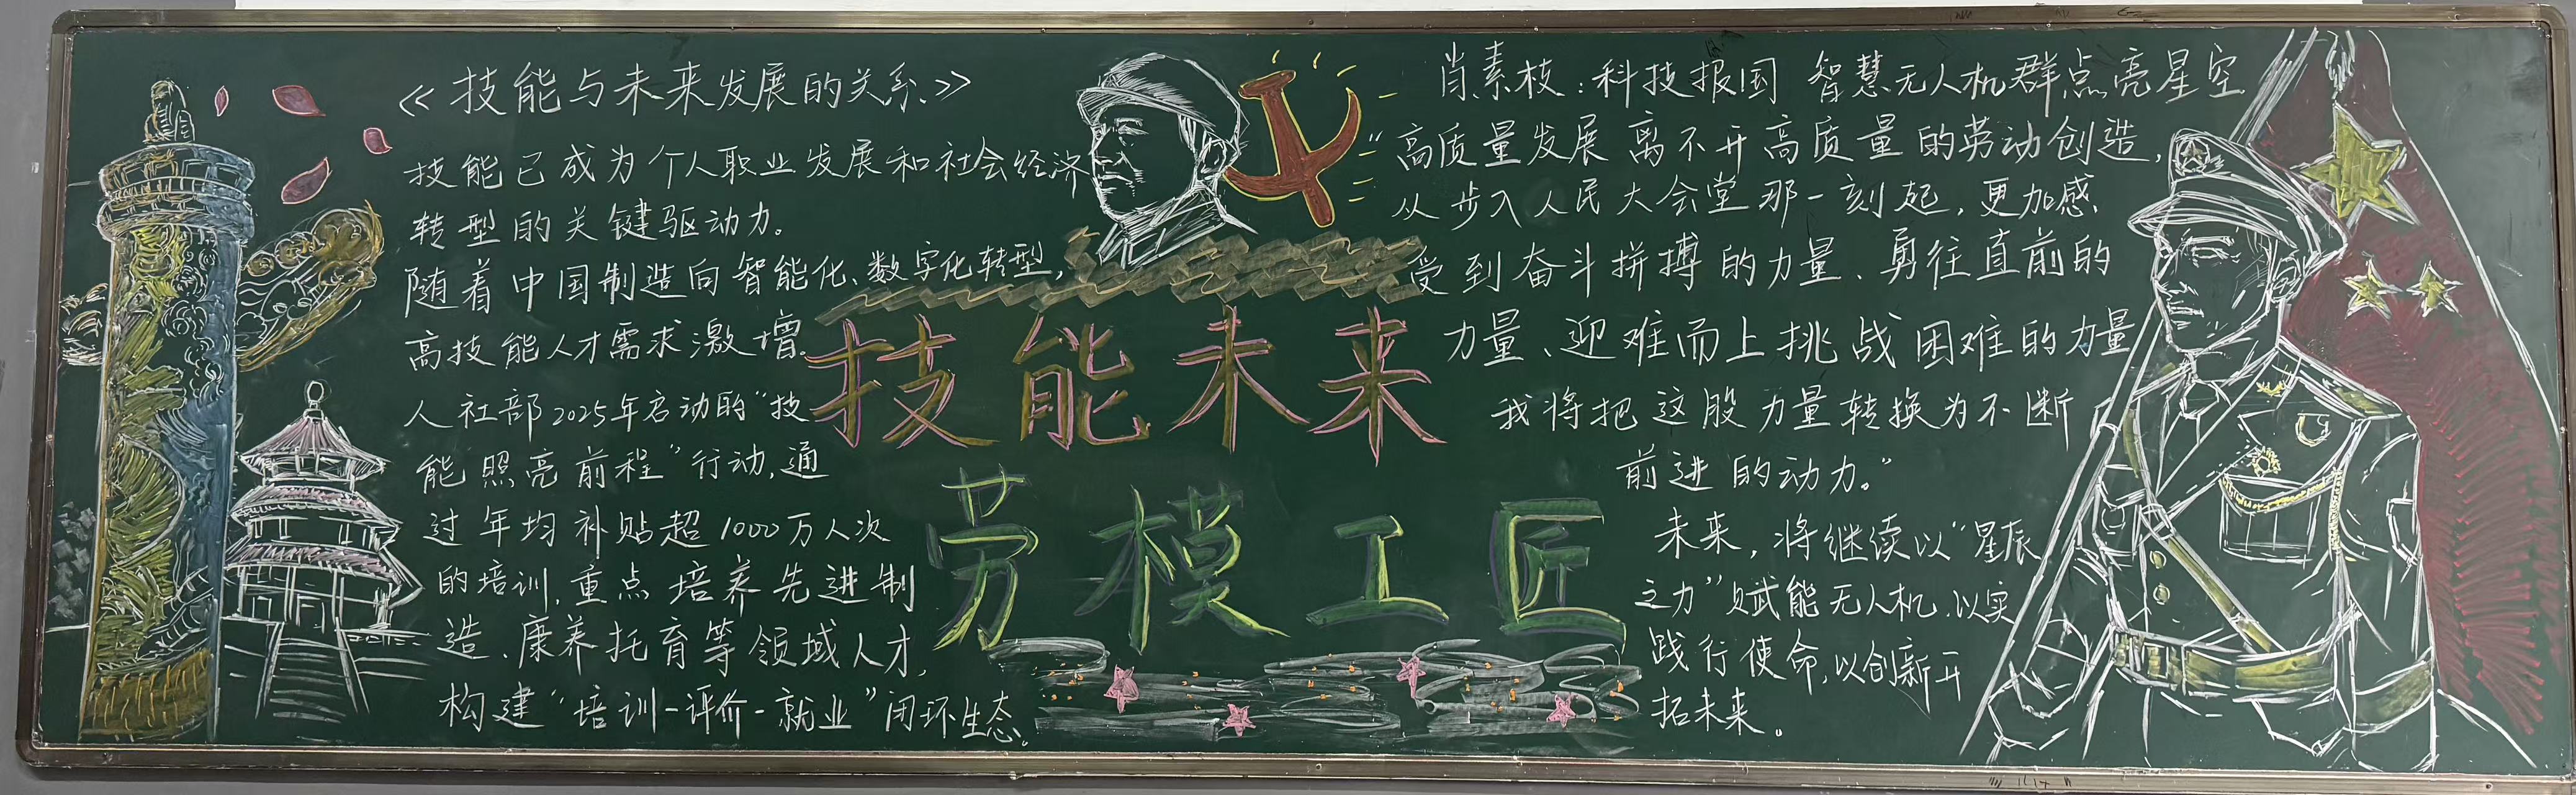 《技能与未来发展的关系》
技能已成为个人职业发展和社会经济
转型的关键驱动力。
随着中国制造向智能化、数字化转型,
高技能人才需求激增。
人社部2025年启动的“技
能照亮前程”行动,通
过年均补贴超1000万人次
的培训,重点培养先进制
造、康养托育等领域人才,
构建“培训-评价-就业”闭环生态。
技能未来
劳模工匠
肖素枝:科技报国 智慧无人机群点亮星空
“高质量发展离不开高质量的劳动创造,
从步入人民大会堂那一刻起,更加感
受到奋斗拼搏的力量、勇往直前的
力量、迎难而上挑战困难的力量
我将把这股力量转换为不断
前进的动力。”
未来,将继续以“星辰
之力”赋能无人机,以实
践行使命,以创新开
拓未来。